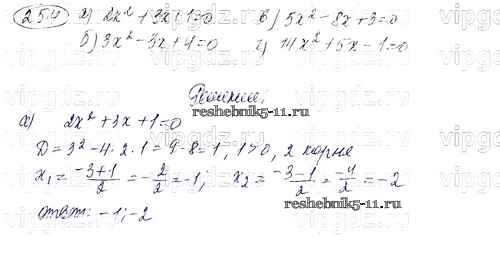 25.4 а) 2x² + 3x + 1 = 0 в) 5x² - 8x + 3 = 0
б) 3x² - 3x + 4 = 0 г) 14x² + 5x - 1 = 0
Решение.
reshebnik5-11.ru
а) 2x² + 3x + 1 = 0
D = 3² - 4·2·1 = 9 - 8 = 1, 1 > 0, 2 корня
x₁ = (-3+1)/2 = -2/2 = -1; x₂ = (-3-1)/2 = -4/2 = -2
reshebnik5-11.ru
ответ: -1; -2